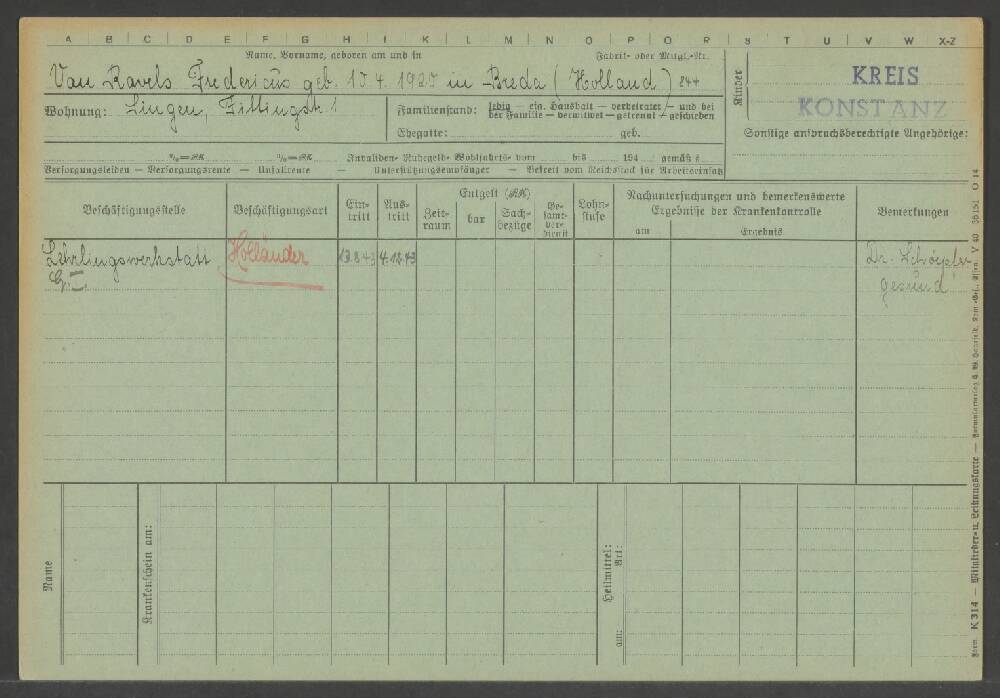 A B C D E F G H I K L M N O P Q R S T U V W X-Z
Name, Vorname, geboren am und in Fabrik- oder Mitgl.-Nr.
Van Ravels Fredericus geb. 4. 1925 in Breda (Holland) 244
Kinder
KREIS
KONSTANZ
Wohnung: Singen,
Familienstand: ledig — eig. Haushalt — verheiratet — und bei
der Familie — verwitwet — getrennt — geschieden
Ehegatte: geb.
Sonstige anspruchsberechtigte Angehörige:
%=RK %=RK Invaliden- Ruhegeld- Wohlfahrts- vom bis 194 gemäß §
Versorgungsleiden — Versorgungsrente — Unfallrente — Unterstützungsempfänger — Befreit vom Reichsstock für Arbeitereinsatz
Beschäftigungsstelle
Beschäftigungsart
Ein-
tritt
Aus-
tritt
Entgelt (RK)
Zeit-
raum
bar
Sach-
bezüge
Ge-
samt-
ver-
dienst
Lohn-
stufe
Nachuntersuchungen und bemerkenswerte
Ergebnisse der Krankenkontrolle
am Ergebnis
Bemerkungen
Lehrlingswerkstatt Holländer 13.8.43 4.12.43 Dr.
G. II. gesund
Name
Krankenschein am:
Heilmittel:
Art:
am:
Form. K 314 — Mitglieder- u. Leistungskarte